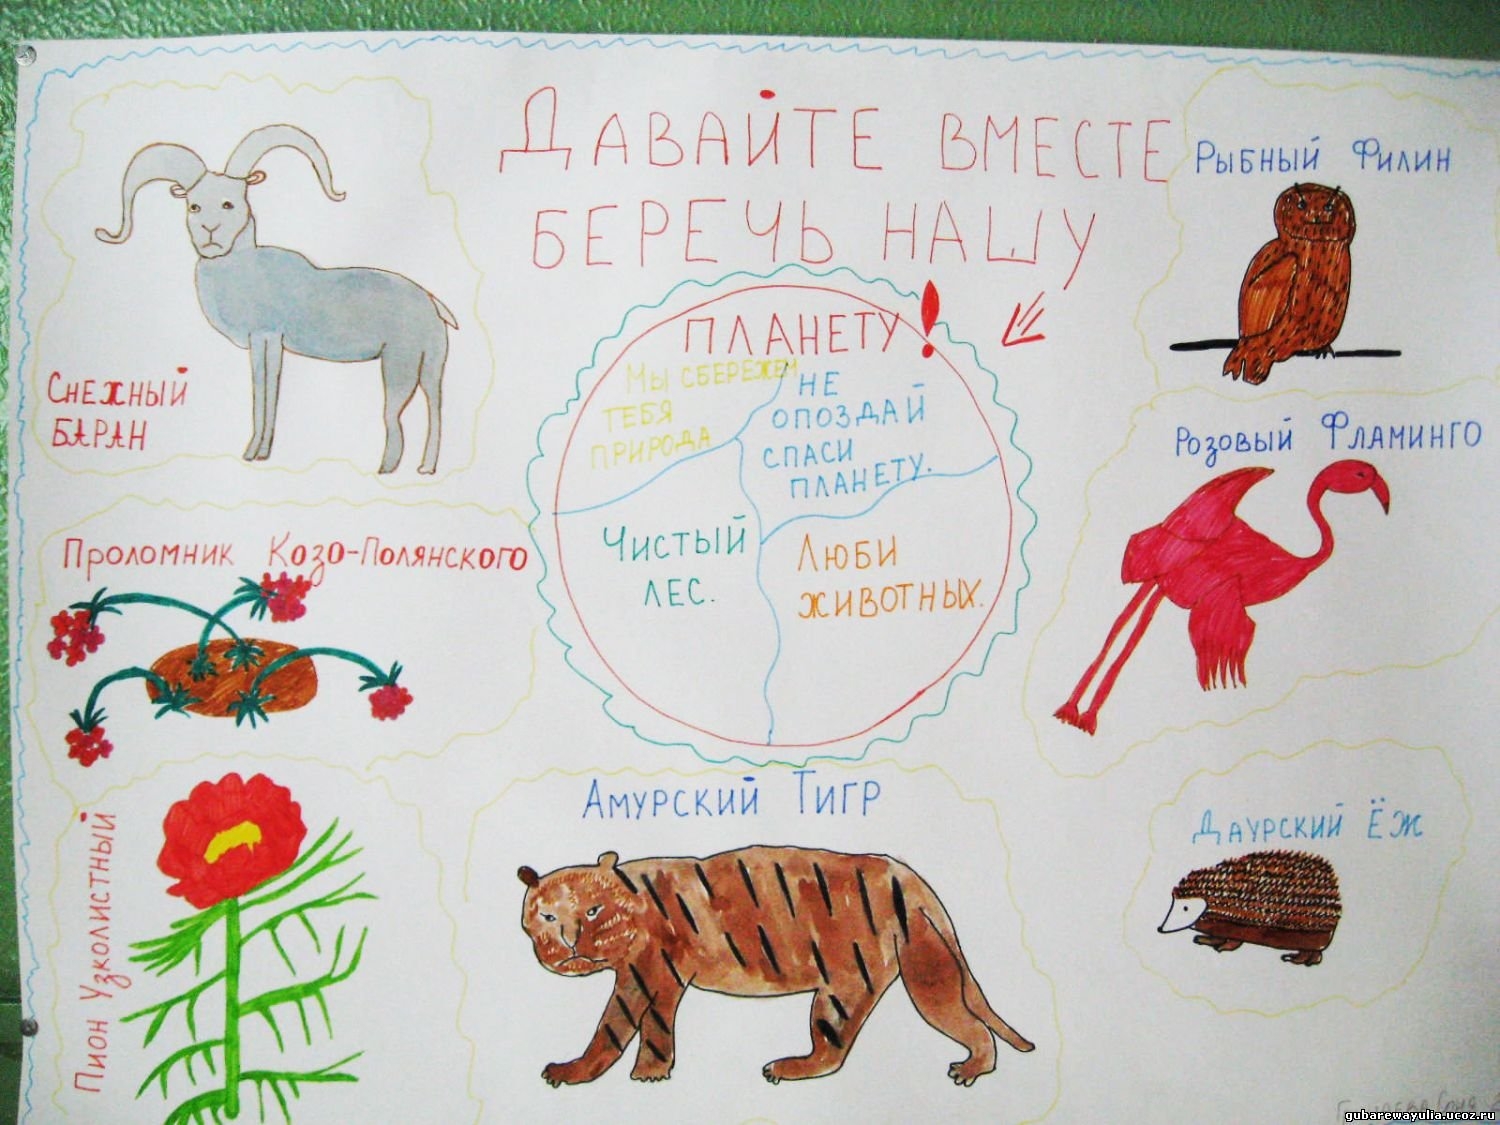 ДАВАЙТЕ ВМЕСТЕ
БЕРЕЧЬ НАШУ
ПЛАНЕТУ!
МЫ СБЕРЕЖЕМ
ТЕБЯ
ПРИРОДА
НЕ
ОПОЗДАЙ
СПАСИ
ПЛАНЕТУ.
ЧИСТЫЙ
ЛЕС.
ЛЮБИ
ЖИВОТНЫХ.
СНЕЖНЫЙ
БАРАН
РЫБНЫЙ ФИЛИН
РОЗОВЫЙ ФЛАМИНГО
ПРОЛОМНИК КОЗО-ПОЛЯНСКОГО
ПИОН УЗКОЛИСТНЫЙ
АМУРСКИЙ ТИГР
ДАУРСКИЙ ЁЖ
gubarewayulia.ucoz.ru